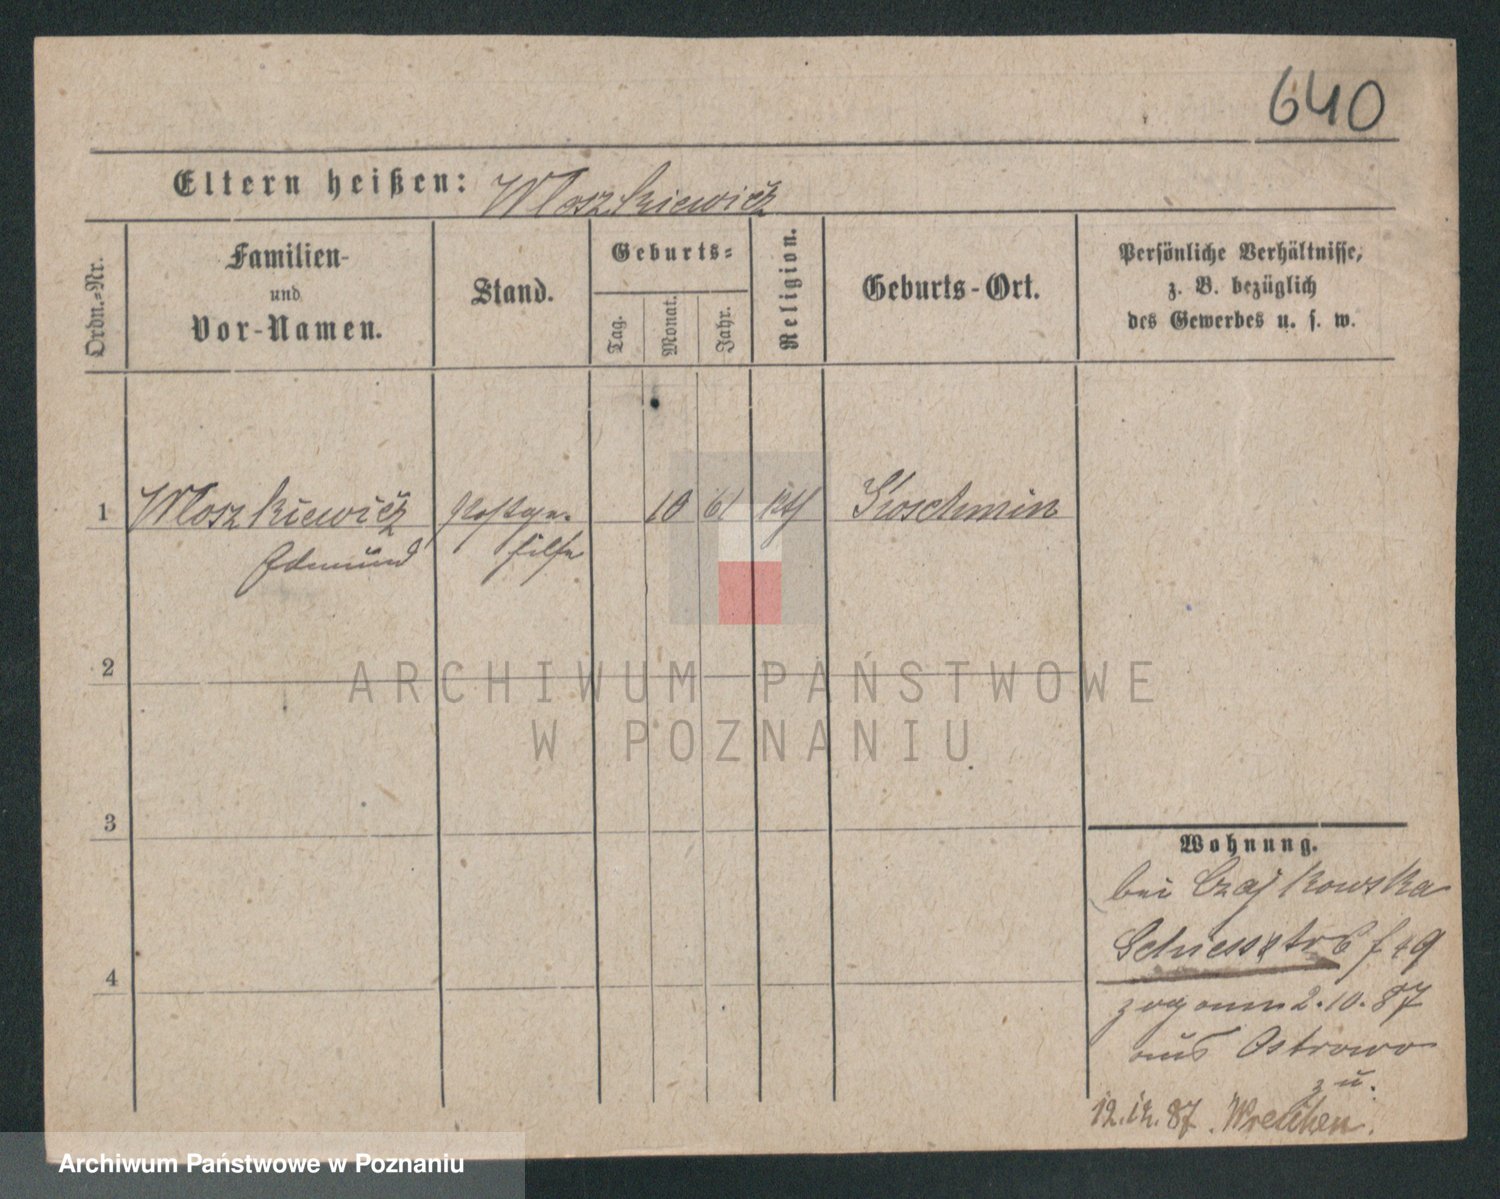 640
Eltern heißen: Wloszkiewicz
Ordn.-Nr.
Familien-
und
Vor-Namen.
Stand.
Geburts-
Tag.
Monat.
Jahr.
Religion.
Geburts-Ort.
Persönliche Verhältnisse,
z. B. bezüglich
des Gewerbes u. s. w.
1 Wloszkiewicz Postge- 10 61 kth Koschmin
Edmund hilfe
2
3
4
Wohnung.
bei Czajkowska
Schiessstr 6
zog am 2.10.87
aus Ostrowo
zu.
12.12.87. Wreschen.
ARCHIWUM PAŃSTWOWE
W POZNANIU
Archiwum Państwowe w Poznaniu